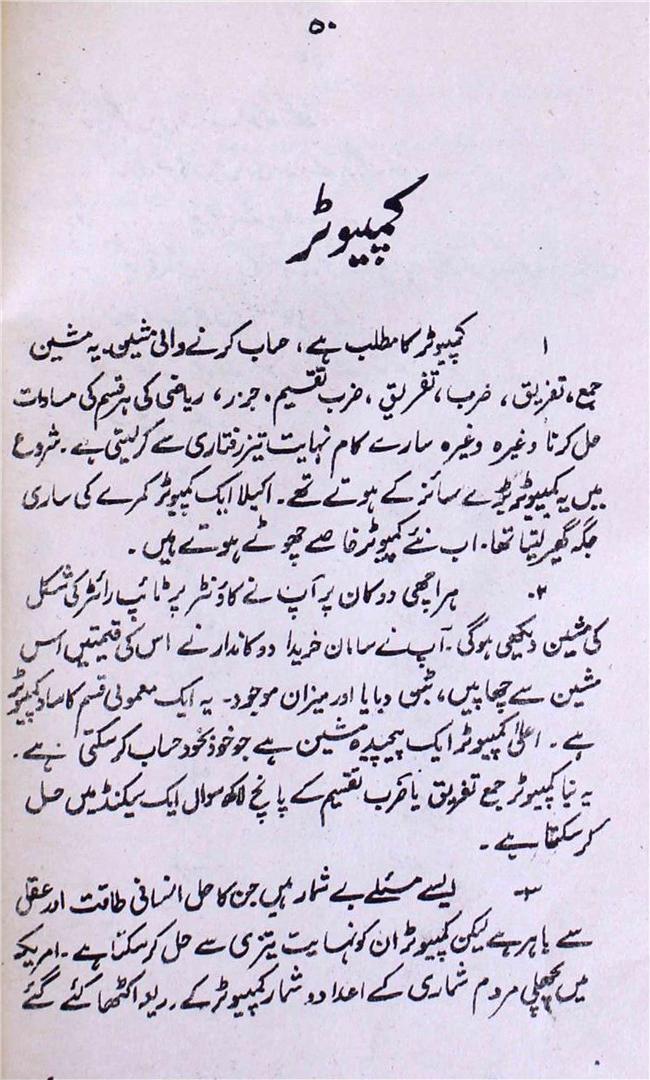 ۵۰
کمپیوٹر
۱ کمپیوٹر کا مطلب ہے، حساب کرنے والی مشین۔ یہ مشین
جمع، تفریق، ضرب، تفریق، ضرب تقسیم۔ جزر، ریاضی کی ہر قسم کی مساوات
حل کرنا وغیرہ وغیرہ سارے کام نہایت تیز رفتاری سے کر لیتی ہے۔ شروع
میں یہ کمپیوٹر بڑے سائز کے ہوتے تھے۔ اکیلا ایک کمپیوٹر کمرے کی ساری
جگہ گھیر لیتا تھا۔ اب نئے کمپیوٹر خاصے چھوٹے ہوتے ہیں۔
۲۔ ہر اچھی دوکان پر آپ نے کاؤنٹر پر ٹائپ رائٹر کی شکل
کی مشین دیکھی ہوگی۔ آپ نے سامان خریدا دوکاندار نے اس کی قیمتیں اس
مشین سے چھاپیں، بٹن دبایا اور میزان موجود۔ یہ ایک معمولی قسم کا سادہ کمپیوٹر
ہے۔ اعلیٰ کمپیوٹر ایک پیچیدہ مشین ہے جو خود بخود حساب کر سکتی ہے۔
یہ نیا کمپیوٹر جمع تفریق یا ضرب تقسیم کے پانچ لاکھ سوال ایک سیکنڈ میں حل
کر سکتا ہے۔
۳۔ ایسے مسئلے بے شمار ہیں جن کا حل انسانی طاقت اور عقل
سے باہر ہے لیکن کمپیوٹر ان کو نہایت تیزی سے حل کر سکتا ہے۔ امریکہ
میں پچھلی مردم شماری کے اعداد و شمار کمپیوٹر کے اکٹھا کئے گئے